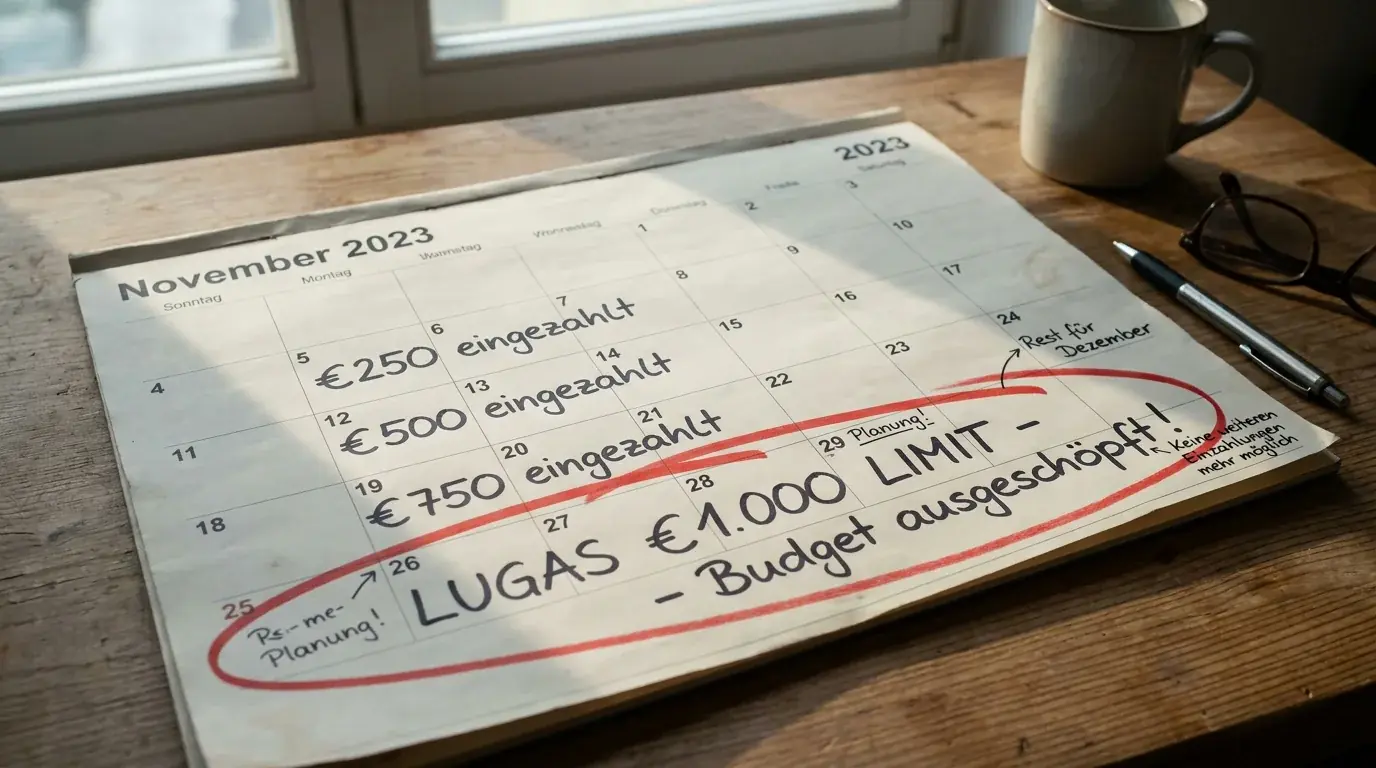 2023
November 2023
Sonntag
Montag
1
2
3
€250 eingezahlt
4
5
6
7
8
9
10
€500 eingezahlt
11
12
13
14
15
16
17
€750 eingezahlt
18
19
20
21
22
23
24
Rest für
Dezember
25
26
27
28
29
Planung!
LUGAS €1.000 LIMIT -
- Budget ausgeschöpft!
Planung!
Keine weiteren
Einzahlungen
mehr möglich